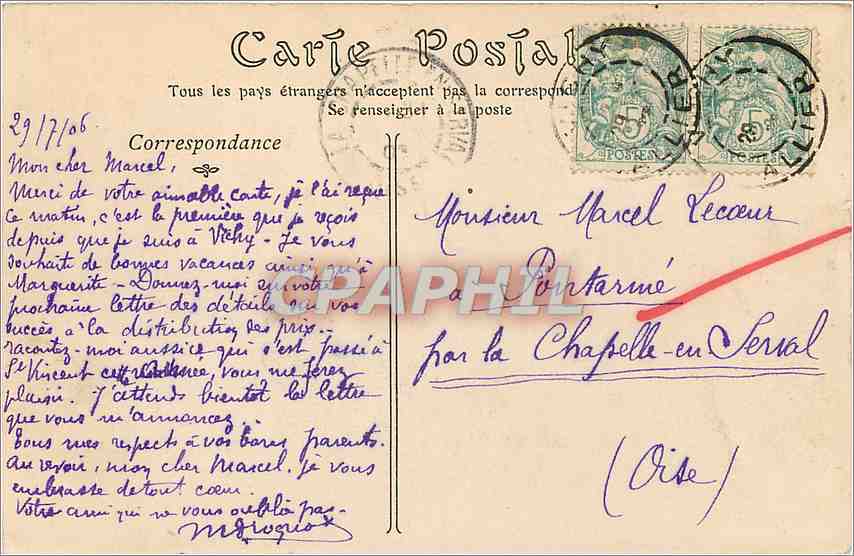 Carte Postale
Tous les pays étrangers n'acceptent pas la correspond
Se renseigner à la poste
Correspondance
29/7/06
Mon cher Marcel,
Merci de votre aimable carte, je l'ai reçue
ce matin, c'est la première que je reçois
depuis que je suis à Vichy - Je vous
souhaite de bonnes vacances ainsi qu'à
Marguerite - Donnez-moi sur votre
prochaine lettre des détails sur vos
succès à la distribution des prix -
racontez-moi aussi ce qui s'est passé à
St Vincent cette, vous me ferez
plaisir. J'attends bientôt la lettre
que vous m'annoncez.
Tous mes respects à vos bons parents.
Au revoir, mon cher Marcel, je vous
embrasse de tout coeur.
Votre ami qui ne vous oublie pas -
Monsieur Marcel Lecoeur
à Pontarmé
par la Chapelle-en-Serval
(Oise)
5
POSTES
ALLIER
5
POSTES
ALLIER
CPAPHIL